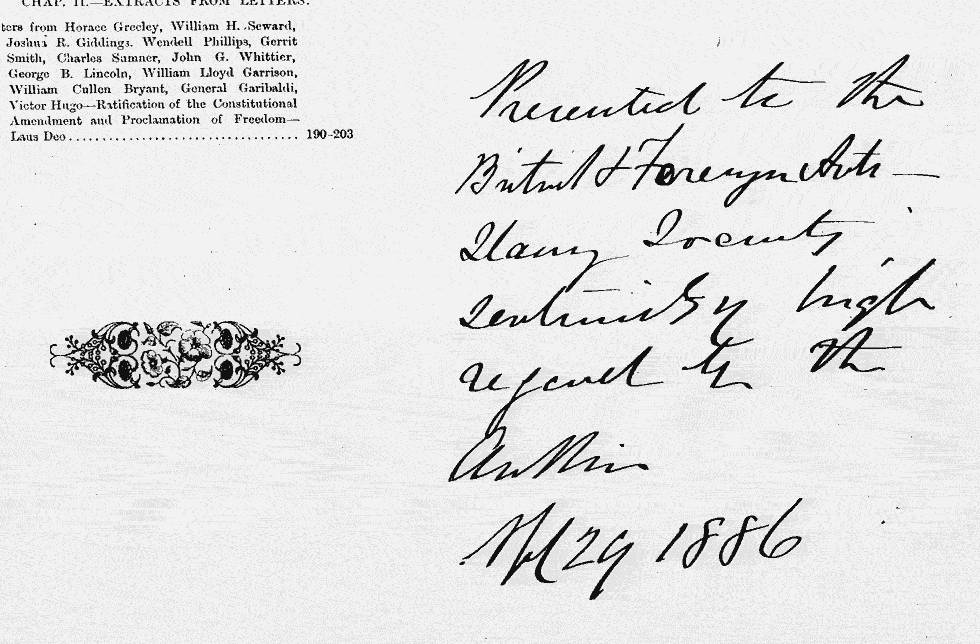 CHAP. II.—EXTRACTS FROM LETTERS.
ters from Horace Greeley, William H. Seward,
Joshua R. Giddings. Wendell Phillips, Gerrit
Smith, Charles Sumner, John G. Whittier,
George B. Lincoln, William Lloyd Garrison,
William Cullen Bryant, General Garibaldi,
Victor Hugo—Ratification of the Constitutional
Amendment and Proclamation of Freedom—
Laus Deo................................. 190-203
Presented to the
British & Foreign Anti—
Slavery Society
sentiments of high
regard by the
Author
Apl 29 1886